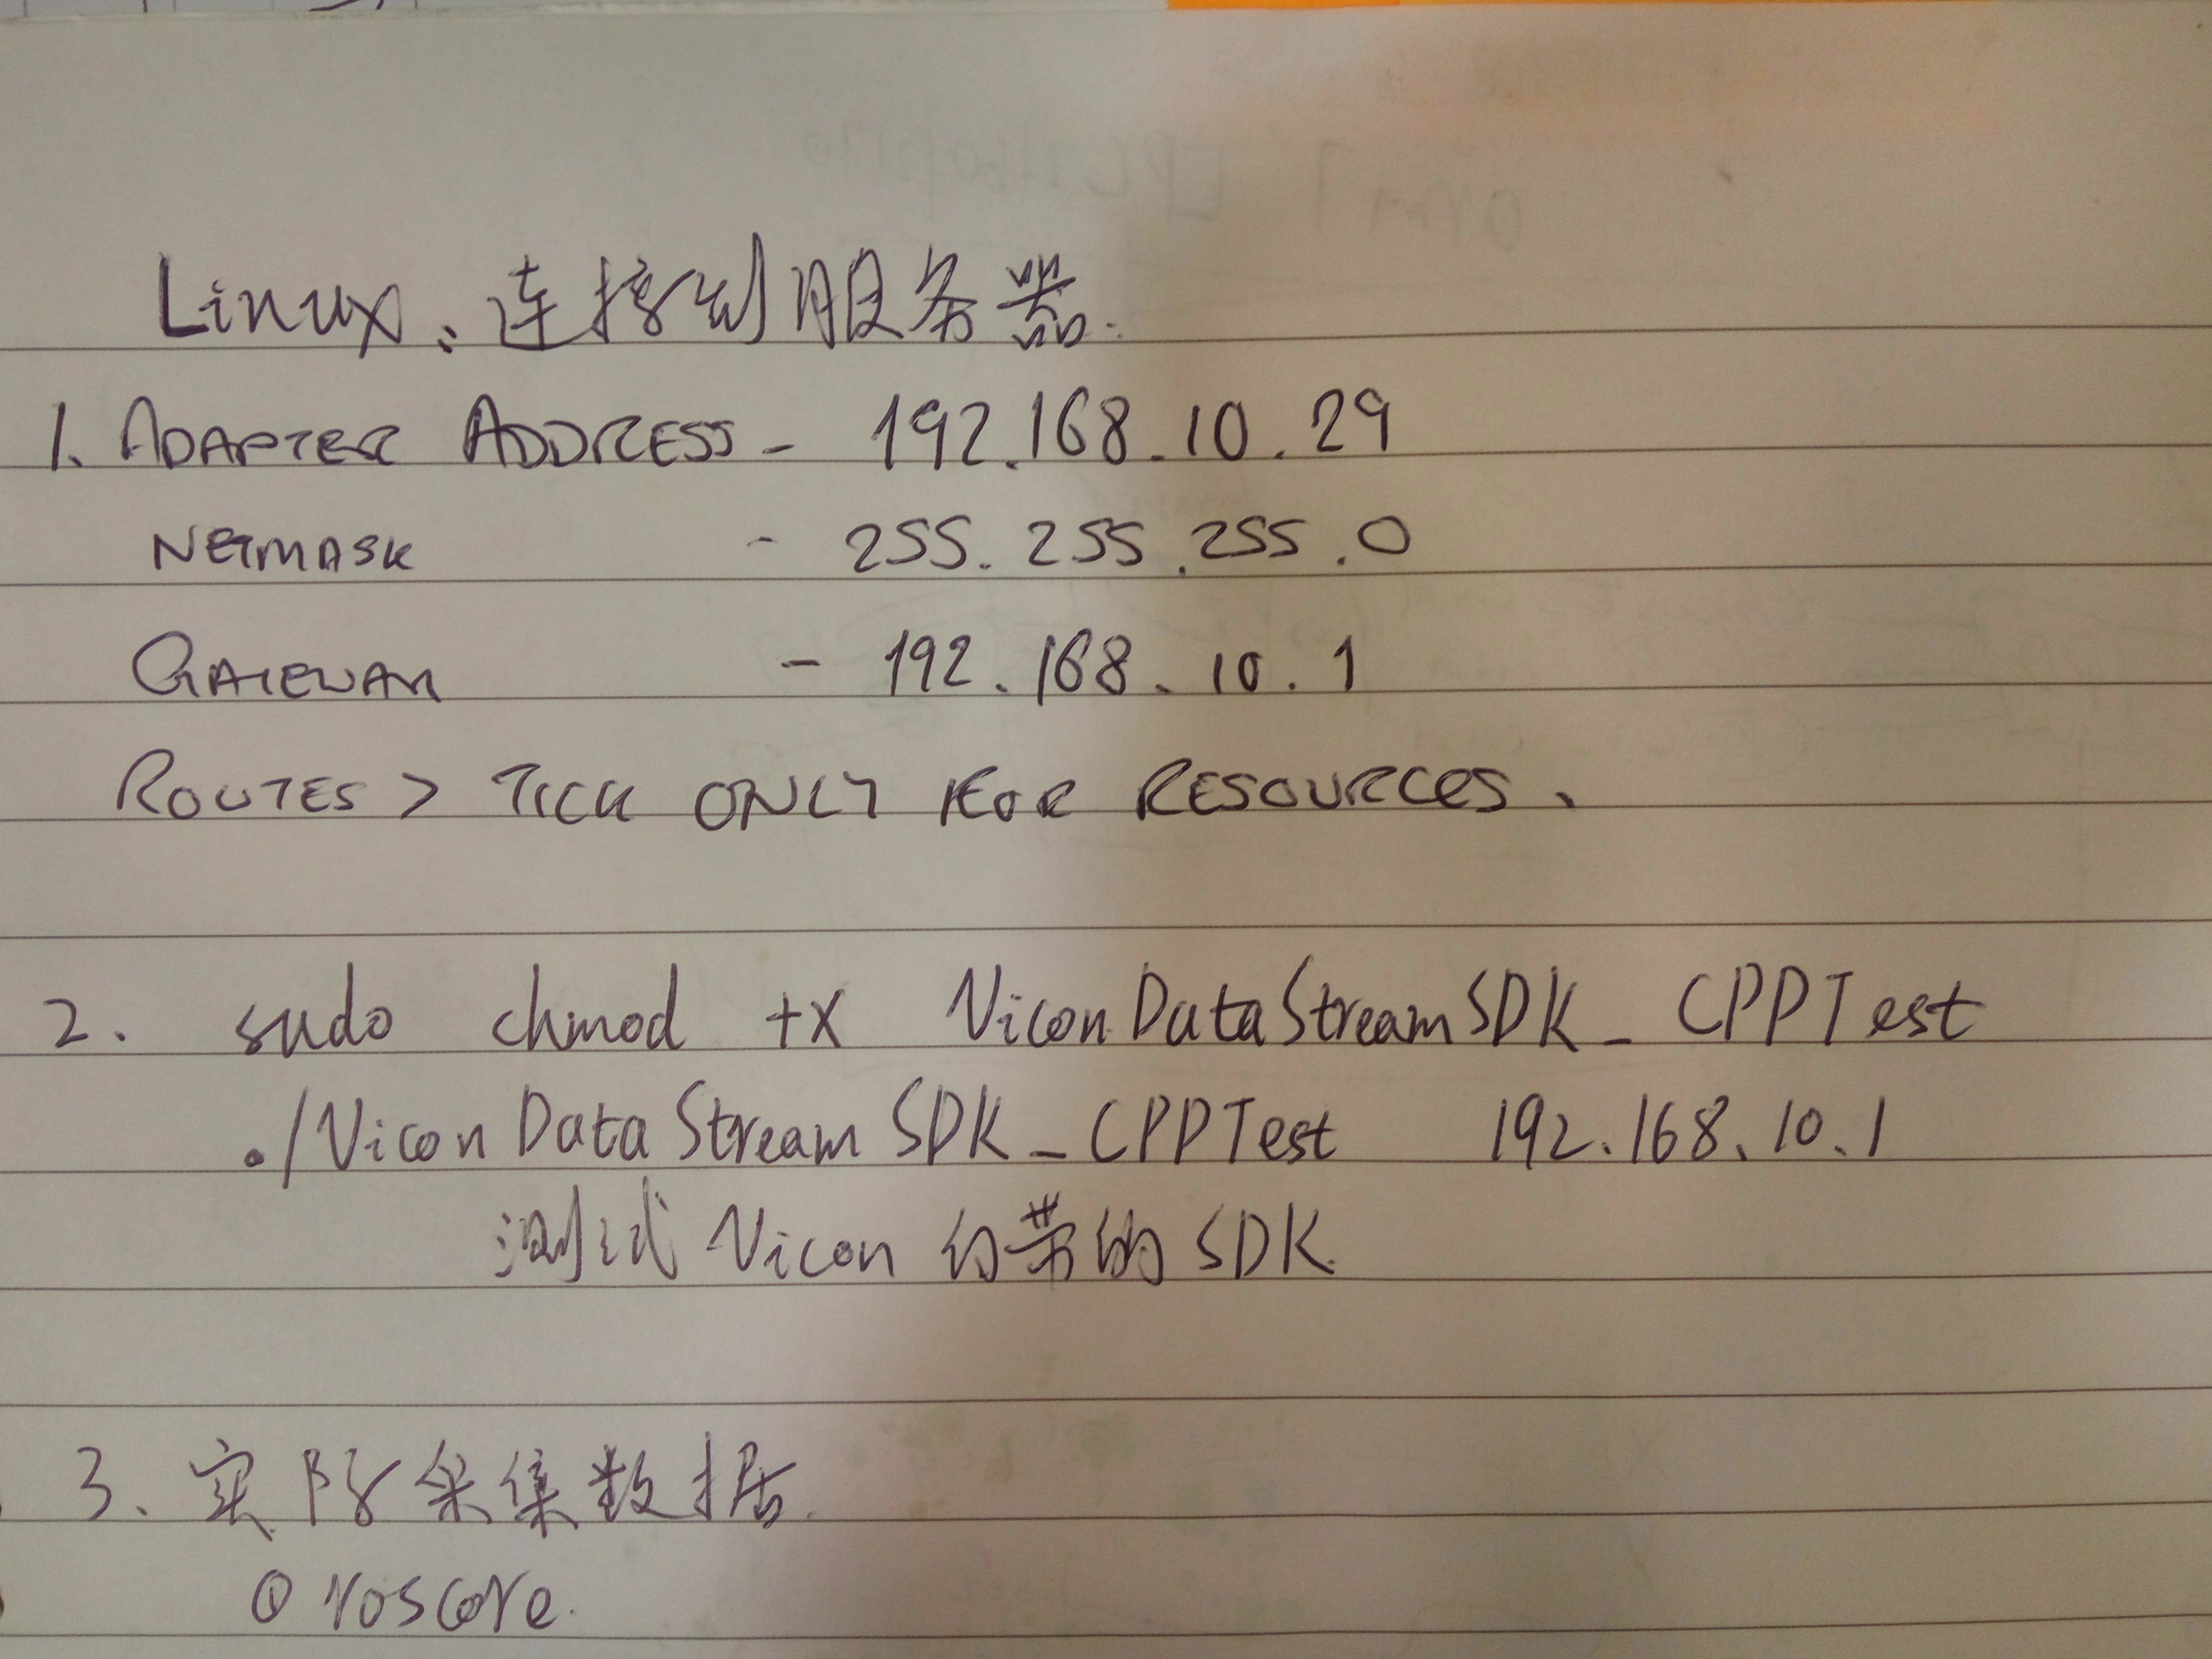 Linux、连接到服务器.
1. ADAPTER ADDRESS - 192.168.10.29
NETMASK - 255.255.255.0
GATEWAY - 192.168.10.1
ROUTES > TICK ONLY FOR RESOURCES.
2. sudo chmod +x ViconDataStreamSDK_CPPTest
./ViconDataStreamSDK_CPPTest 192.168.10.1
测试Vicon自带的SDK.
3、实际采集数据.
① roscore.